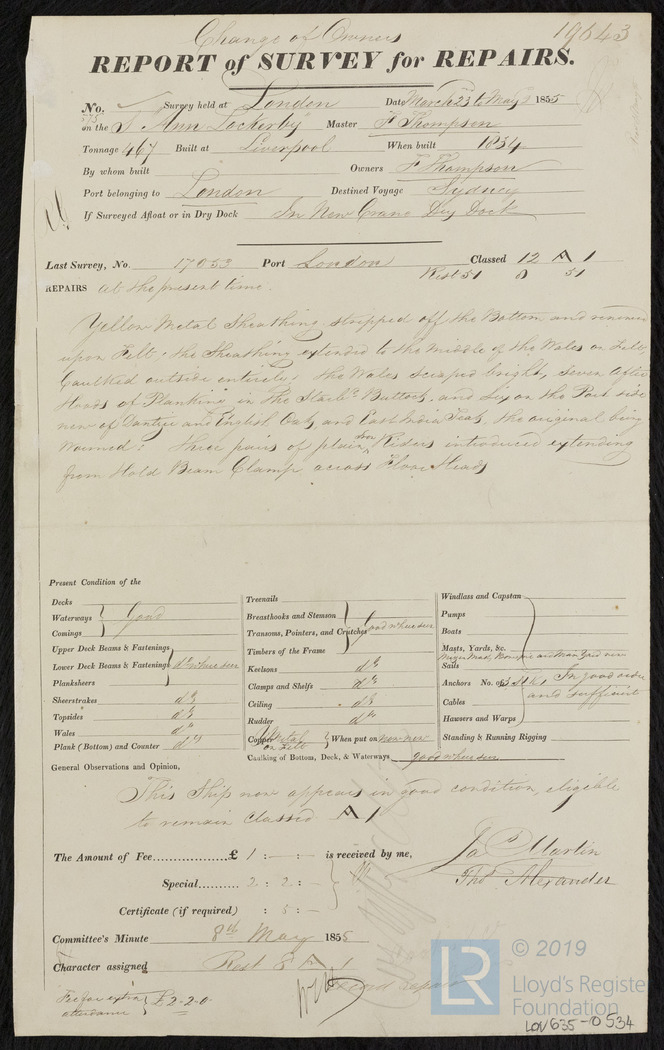 Change of Owners
19643
REPORT of SURVEY for REPAIRS.
No. Survey held at London Date March 23 to May 1855
on the S. Ann Lockerby Master F Thompson
Tonnage 467 Built at Liverpool When built 1834
By whom built Owners F Thompson
Port belonging to London Destined Voyage Sydney
If Surveyed Afloat or in Dry Dock In New Crane Dry Dock
Last Survey, No. 17053 Port London Classed 12 A 1
Rest 51 8 51
REPAIRS at the present time.
Yellow Metal Sheathing stripped off the Bottom and renewed
upon Felt; the Sheathing extended to the middle of the Wales on Felt,
Caulked outside entirely: the Wales scraped bright, seven after
Hoods of Planking in the Starbd Buttock, and Six on the Port side
new of Dantzic and English Oak, and East India Teak, the original being
Wormed: three pairs of plain iron Riders introduced extending
from Hold Beam Clamp across Floor Heads
Present Condition of the
Decks
Waterways Good
Comings
Upper Deck Beams & Fastenings
Lower Deck Beams & Fastenings do when seen
Planksheers
Sheerstrakes do
Topsides do
Wales do
Plank (Bottom) and Counter do
Treenails
Breasthooks and Stemson
Transoms, Pointers, and Crutches Good when seen
Timbers of the Frame
Keelsons do
Clamps and Shelfs do
Ceiling do
Rudder do
Copper Y Metal on Felt When put on now new
Caulking of Bottom, Deck, & Waterways good when seen
Windlass and Capstan
Pumps
Boats
Masts, Yards, &c.
Sails
Anchors No. of In good order
Cables and sufficient
Hawsers and Warps
Standing & Running Rigging
General Observations and Opinion,
This Ship now appears in good condition, eligible
to remain Classed A 1
The Amount of Fee £ 1 : - : - is received by me,
Special 2 : 2 : -
Certificate (if required) : 5 : -
Jas Martin
Thos Alexander
Committee's Minute 8th May 1855
Character assigned Rest 8 A 1
Fee for extra attendance £2-2-0
© 2019
LR
Lloyd's Registe
Foundation
LOV635-0534